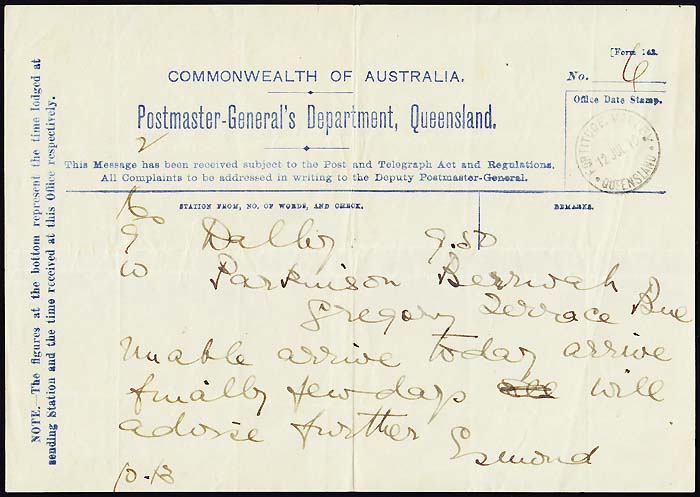 [Form 143.
COMMONWEALTH OF AUSTRALIA.
No. 6
Postmaster-General's Department, Queensland.
Office Date Stamp.
FORTITUDE VALLEY
12 JUL
QUEENSLAND
2
This Message has been received subject to the Post and Telegraph Act and Regulations.
All Complaints to be addressed in writing to the Deputy Postmaster-General.
STATION FROM, NO. OF WORDS, AND CHECK.
REMARKS.
Dalby 9.50
Parkinson Berrwah
Gregory Terrace Bne
Unable arrive today arrive
finally few days will
advise further
Esmond
10.13
NOTE.—The figures at the bottom represent the time lodged at
sending Station and the time received at this Office respectively.